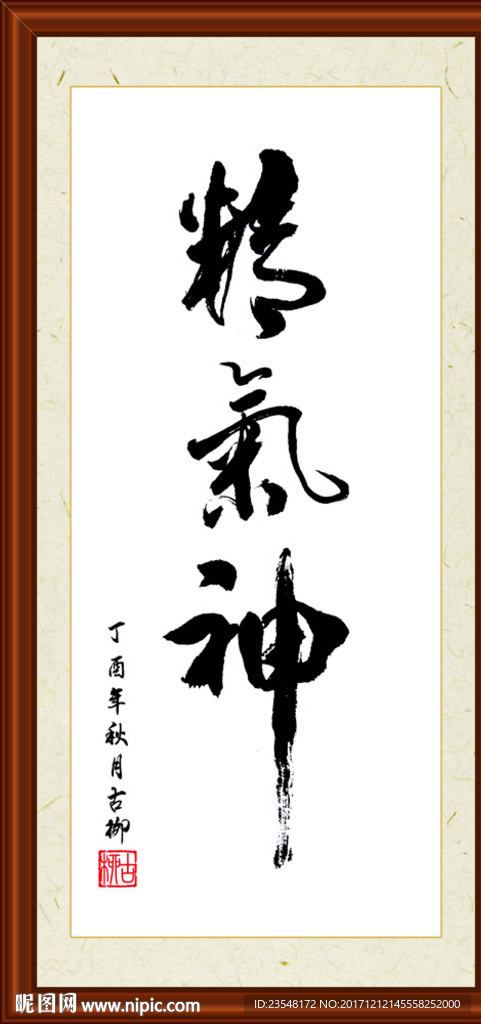 精氣神
丁酉年秋月古柳
古柳
昵图网 www.nipic.com
ID:23548172 NO:20171212145558252000